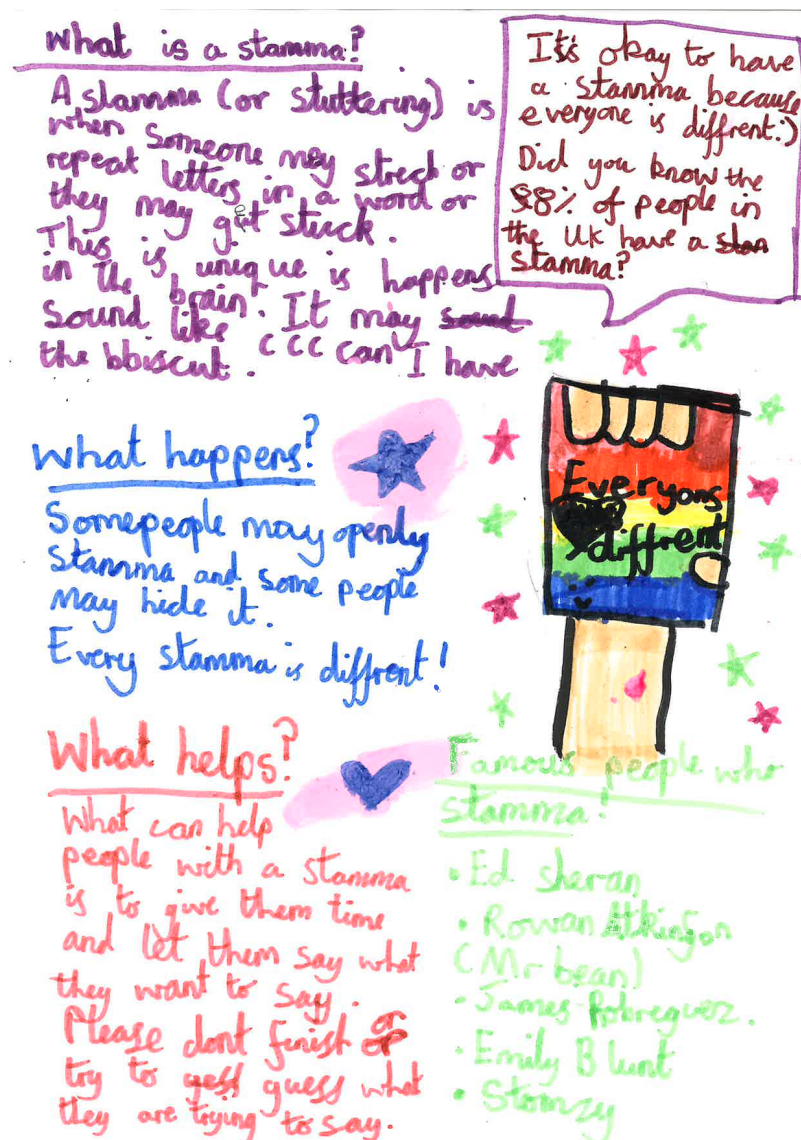 What is a stamma?
A stamma (or stuttering) is
when someone may strech or
repeat letters in a word or
they may get stuck.
This is unique is happens
in the brain. It may
sound like "c c c can I have
the bbiscut.
It's okay to have
a stamma because
everyone is diffrent:)
Did you know the
8% of people in
the UK have a
stamma?
Everyons
diffrent
What happens?
Somepeople may openly
stamma and some people
may hide it.
Every stamma is diffrent!
What helps?
What can help
people with a stamma
is to give them time
and let them say what
they want to say.
Please dont finish or
try to guess what
they are trying to say.
Famous people who
stamma!
• Ed sheran
• Rowan Atkinson
(Mr bean)
• James
• Emily Blunt
• Stomzy